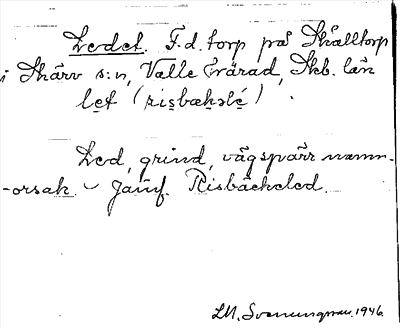 Ledet. F.d. torp på Skålltorp
i Skärv s:n, Valle härad, Skb. län
let (risbækslé)
Led, grind, vägspärr namn-
-orsak. - Jämf. Risbäckeled.
LM. Svenungsson. 1946.